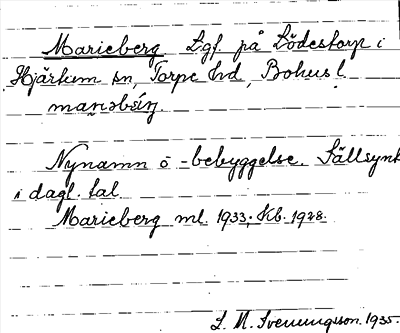 Marieberg Lgf. på Lödestorp i
Hjärtum sn, Torpe hd, Bohusl.
Nynamn o -bebyggelse. Sällsynt
i dagl. tal.
Marieberg ml. 1933; Kb. 1928.
L. M. Svenungsson. 1935.